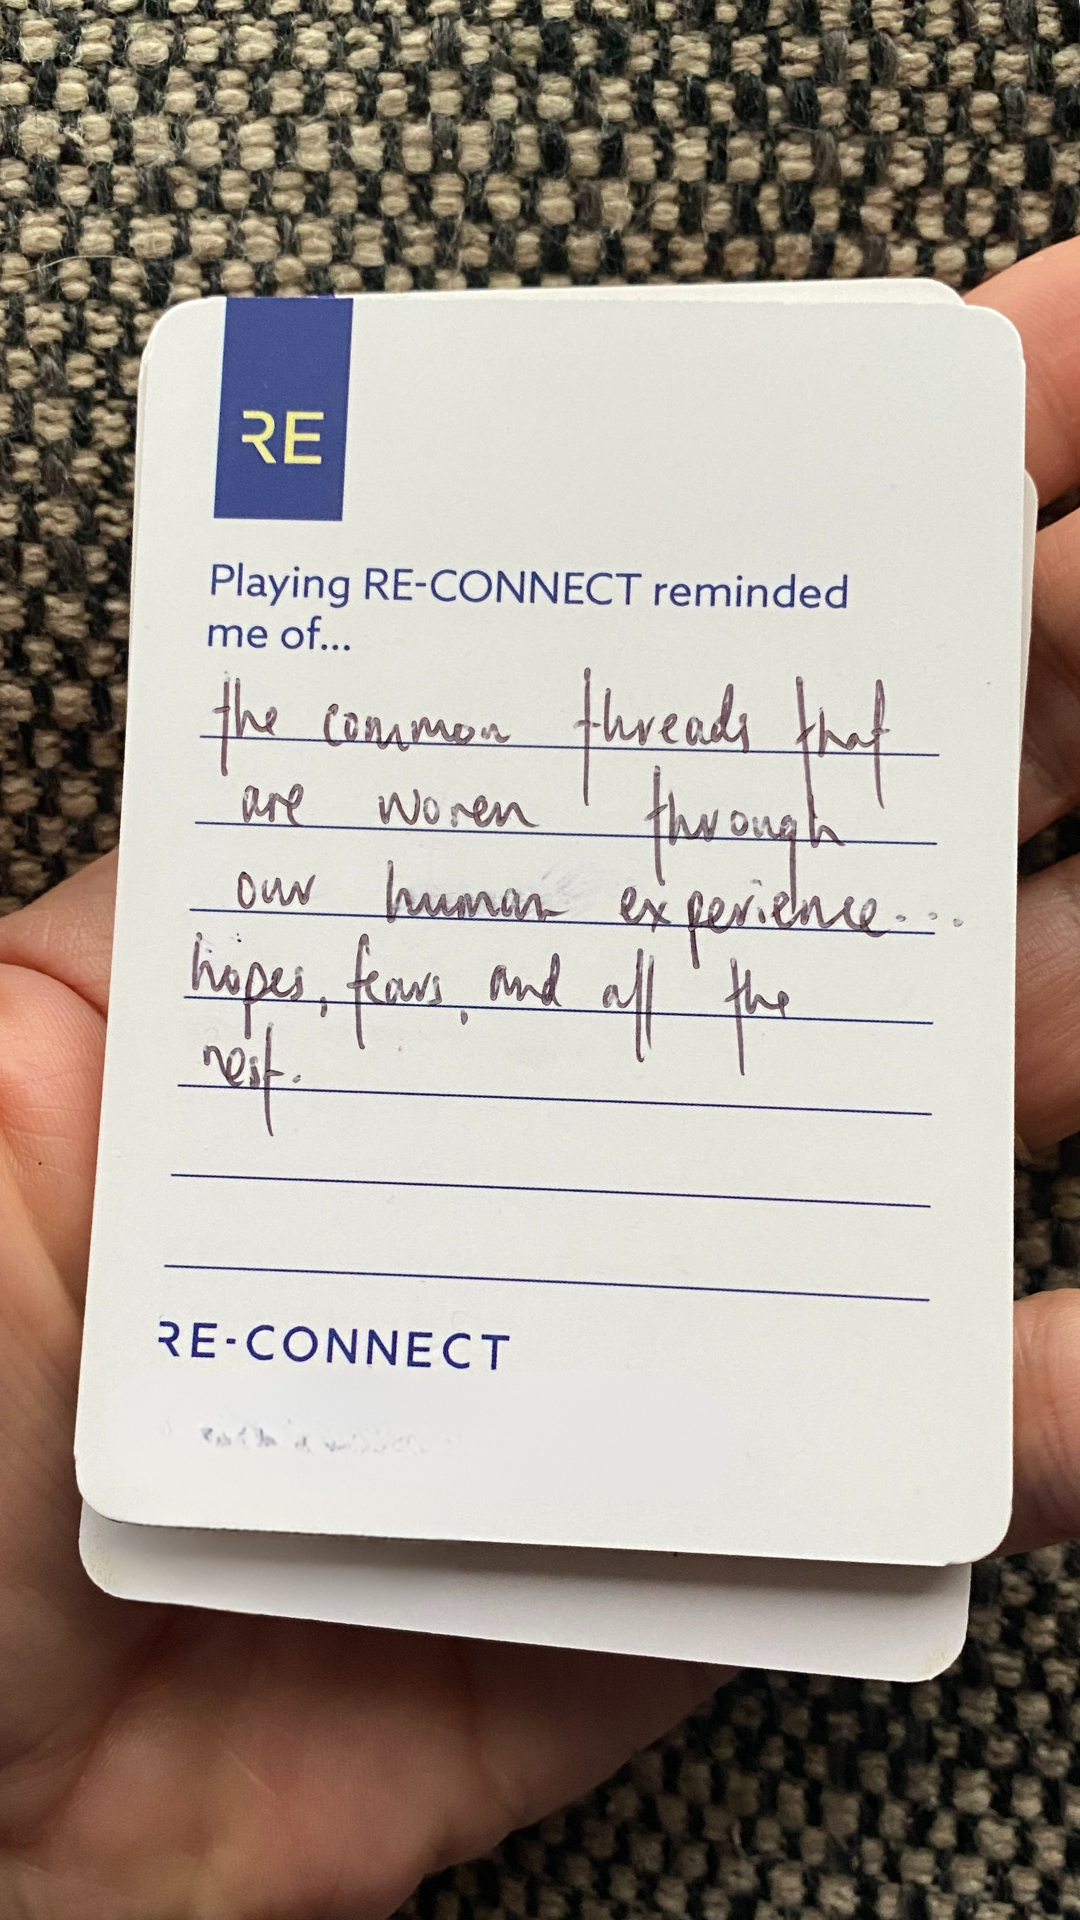 RE
Playing RE-CONNECT reminded
me of...
the common threads that
are woven through
our human experience....
hopes, fears, and all the
rest.
RE-CONNECT